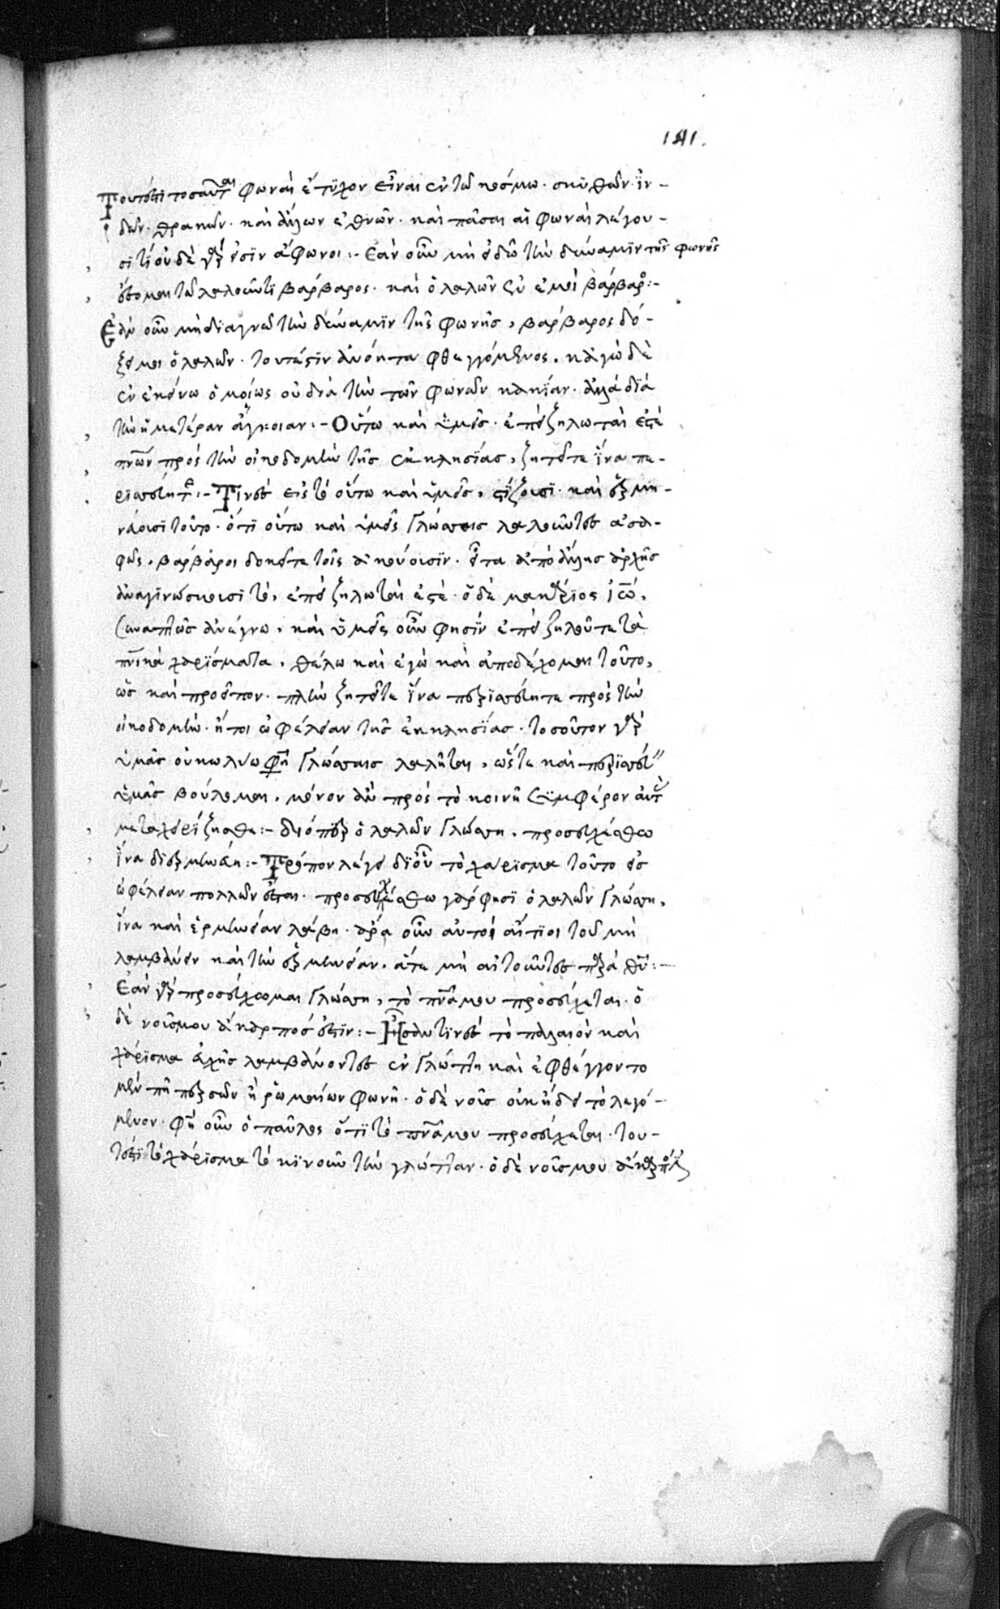 141.
Τουτέστι τοσαῦται φωναὶ ἔτυχον εἶναι ἐν τῶ κόσμω· σκυθῶν· ἰν-
δῶν· θρακῶν· καὶ ἄλλων ἐθνῶν· καὶ πᾶσαι αἱ φωναὶ λέγου-
σί τι οὐδὲ γάρ εἰσιν ἄφωνοι:- Ἐὰν οὖν μὴ εἰδῶ τὴν δύναμιν τῆς φωνῆς
ἔσομαι τῶ λαλοῦντι βάρβαρος· καὶ ὁ λαλῶν ἐν ἐμοὶ βάρβαρος:-
Ἐὰν οὖν μὴ διαγνῶ τὴν δύναμιν τῆς φωνῆς, βάρβαρος δό-
ξει μοι ὁ λαλῶν· τουτέστιν ἀνόητα φθεγγόμενος· κἀγὼ δὲ
ἐν ἐκείνω ὁμοίως οὐ διὰ τὴν τῶν φωνῶν κακίαν· ἀλλὰ διὰ
τὴν ἡμετέραν ἄγνοιαν:- Οὕτω καὶ ὑμεῖς· ἐπεὶ ζηλωταί ἐστε
πνάτων πρὸς τὴν οἰκοδομὴν τῆς ἐκκλησίας, ζητεῖτε ἵνα πε-
ρισσεύητε:- Τινὲς εἰς τὸ οὕτω καὶ ὑμεῖς, στίζουσι· καὶ ἑρμη-
νεύουσι τοῦτο· ὅτι οὕτω καὶ ὑμεῖς γλώσσαις λαλοῦντες ἀσα-
φῶς, βάρβαροι δοκεῖτε τοῖς ἀκούουσιν· εἶτα ἀπὸ ἄλλης ἀρχῆς
ἀναγινώσκουσι τὸ, ἐπεὶ ζηλωταί ἐστε· ὁ δὲ μακάριος ἰω,
συναπτῶς ἀνέγνω, καὶ ὑμεῖς οὖν φησὶν ἐπεὶ ζηλοῦτε τὰ
πνικὰ χαρίσματα, θέλω καὶ ἐγὼ καὶ ἀποδέχομαι τοῦτο,
ὡς καὶ προεῖπον· πλὴν ζητεῖτε ἵνα περισσεύητε πρὸς τὴν
οἰκοδομὴν· ἤτοι ὠφέλειαν τῆς ἐκκλησίας· τοσοῦτον γὰρ
ὑμᾶς οὐ κωλύω φησὶ γλώσσαις λαλεῖται, ὥστε καὶ περισσεύειν
ὑμᾶς βούλομαι, μόνον ἂν πρὸς τὸ κοινῆ συμφέρον αὐτὸ
μεταχειρίζησθε:- διόπερ ὁ λαλῶν γλώσση, προσευχέσθω
ἵνα διερμηνεύη:- Τρόπον λέγει δι' οὗ τὸ χάρισμα τοῦτο εἰς
ὠφέλειαν πολλῶν ἔσται· προσευχέσθω γάρ φησι ὁ λαλῶν γλώσση,
ἵνα καὶ ἑρμηνείαν λάβη· ἄρα οὖν αὐτοὶ αἴτιοι τοῦ μὴ
λαμβάνειν καὶ τὴν ἑρμηνείαν, ἅτε μὴ αἰτοῦντες παρὰ θυ:-
Ἐὰν γὰρ προσεύχωμαι γλώσση, τὸ πνα μου προσεύχεται· ὁ
δὲ νοῦς μου ἄκαρπός ἐστιν:- Ἦσαν τινὲς τὸ παλαιὸν καὶ
χάρισμα εὐχῆς λαμβάνοντες ἐν γλώττη καὶ ἐφθέγγοντο
μὲν τῆ περσῶν ἢ ῥωμαίων φωνῆ· ὁ δὲ νοῦς οὐκ ἤδει τὸ λεγό-
μενον· φησὶ οὖν ὁ παῦλος ὅτι τὸ πνα μου προσεύχεται· του-
τέστι τὸ χάρισμα τὸ κινοῦν τὴν γλώτταν· ὁ δὲ νοῦς μου ἄκαρπός